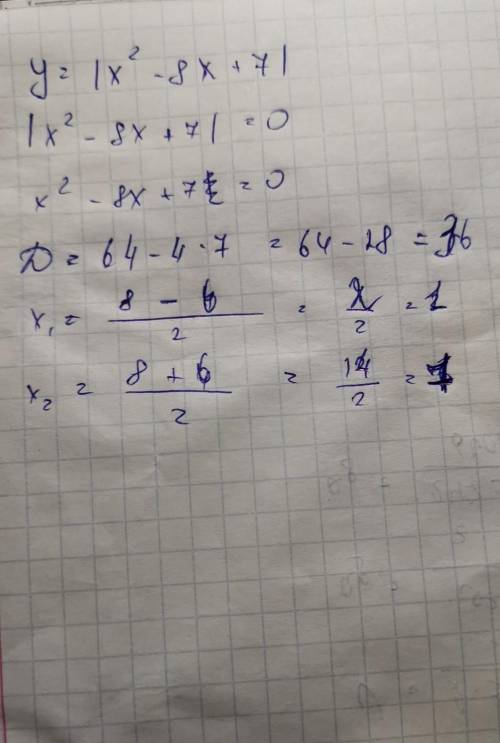 y = |x² - 8x + 7|
|x² - 8x + 7| = 0
x² - 8x + 7 = 0
D = 64 - 4 · 7 = 64 - 28 = 36
x₁ = (8 - 6)/2 = 2/2 = 1
x₂ = (8 + 6)/2 = 14/2 = 7